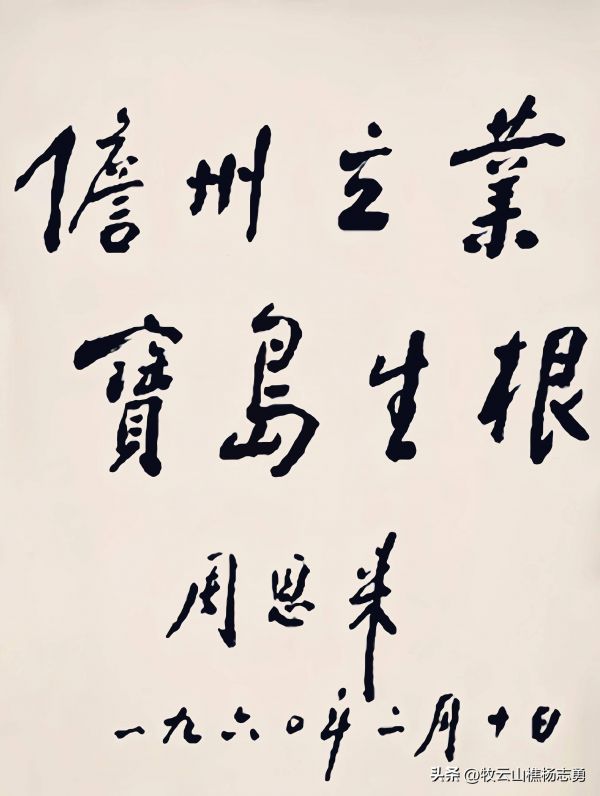 儋州立業
寶島生根
周恩来
一九六〇年二月十日
头条 @牧云山樵杨志勇